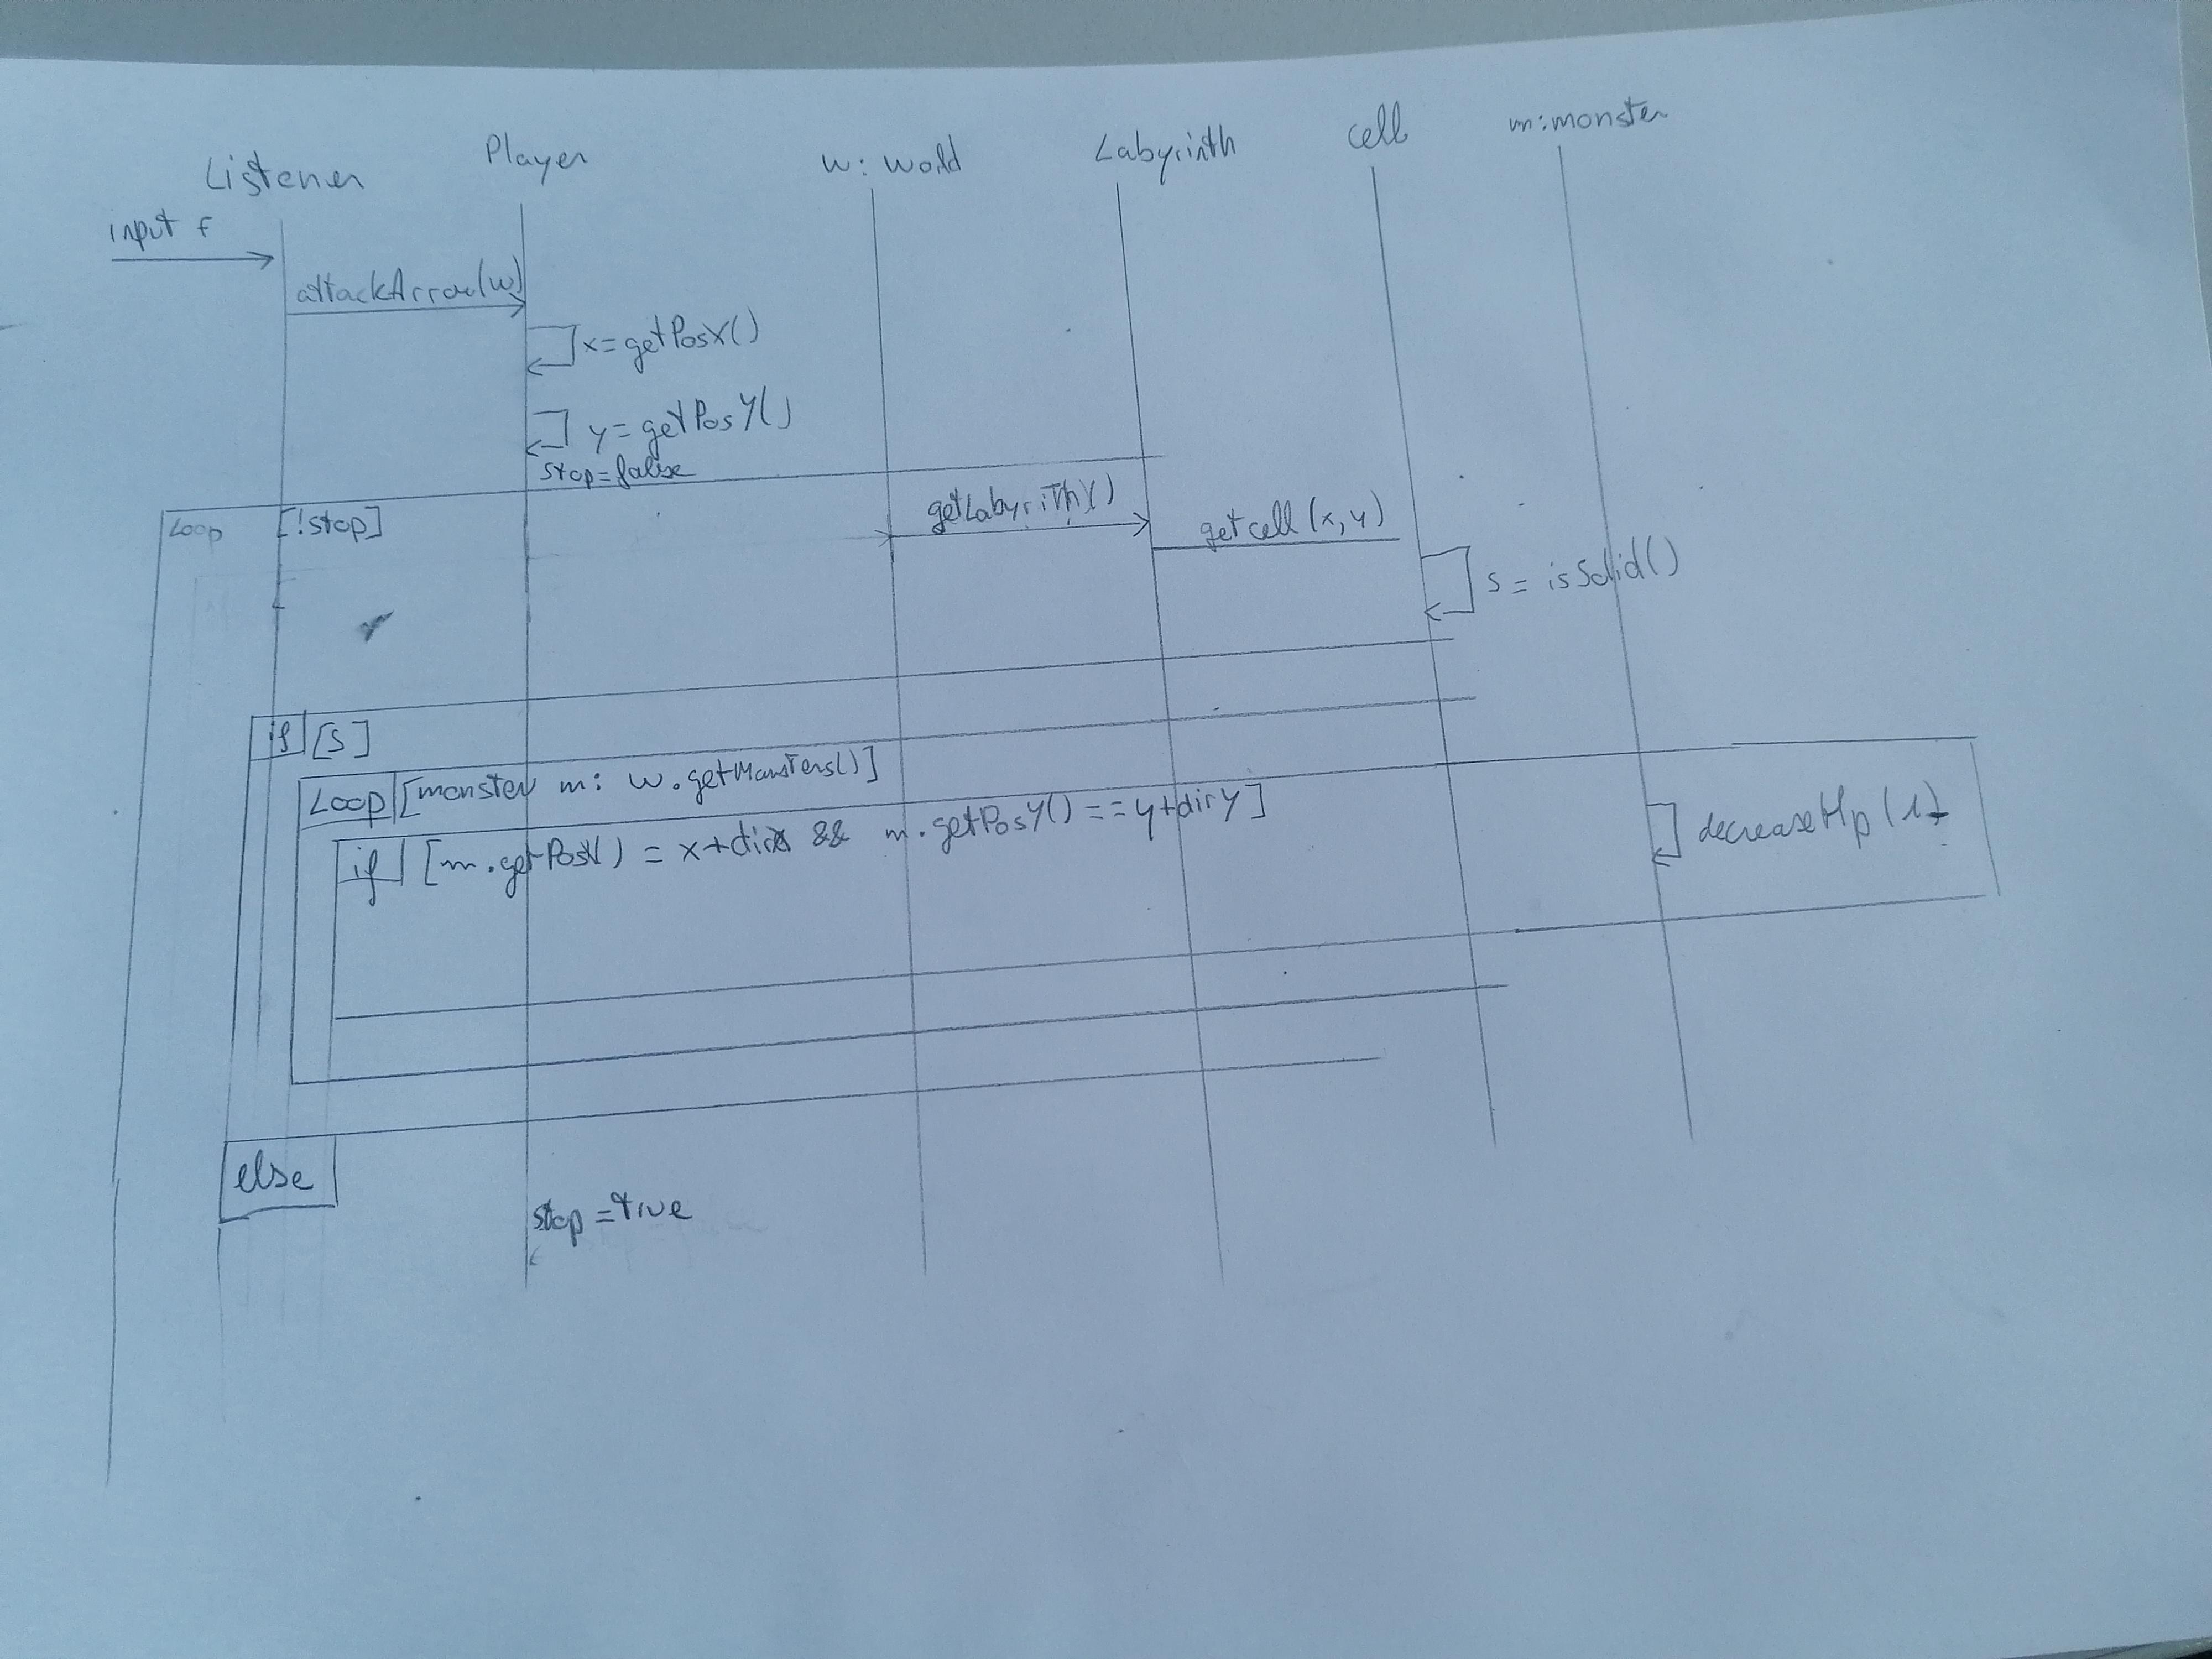 Listener
Player
w: world
Labyrinth
cell
m:monster
input f
attackArrow(w)
x=getPosX()
y=getPosY()
stop=false
Loop [!stop]
getLabyrith()
getcell (x,y)
s = isSolid()
if [S]
Loop [monster m: w.getMonsters()]
if [m.getPosX() = x+dirx && m.getPosY() == y+dirY]
decreaseHp (1)
else
stop=true